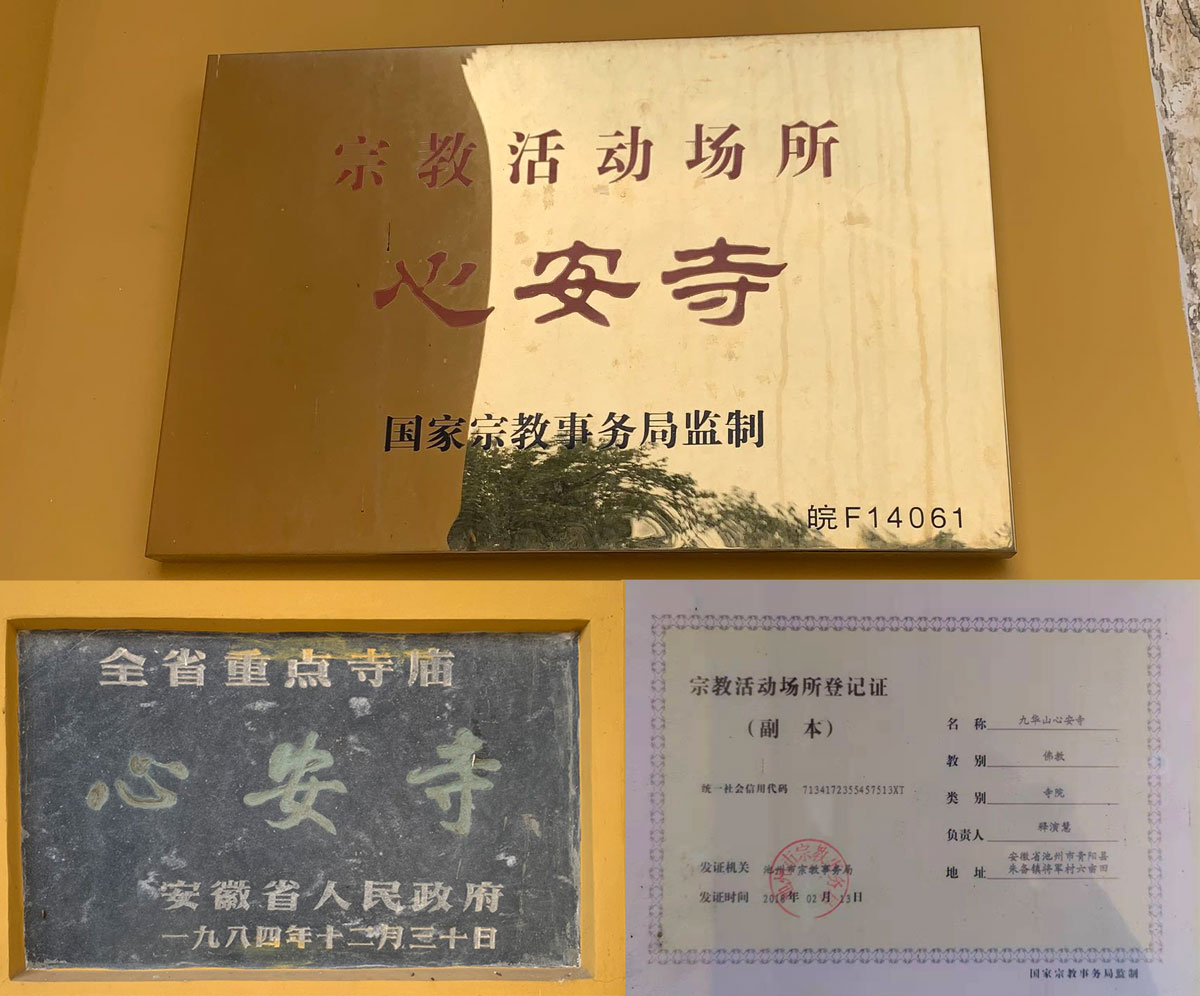 宗教活动场所
心安寺
国家宗教事务局监制
皖F14061
全省重点寺庙
心安寺
安徽省人民政府
一九八四年十二月三十日
宗教活动场所登记证
（副 本）
统一社会信用代码 7134172355457513XT
发证机关 池州市宗教事务局
发证时间 2018年 02月 13日
名 称 九华山心安寺
教 别 佛教
类 别 寺院
负责人 释演慧
地 址 安徽省池州市青阳县
朱备镇将军村六亩田
国家宗教事务局监制